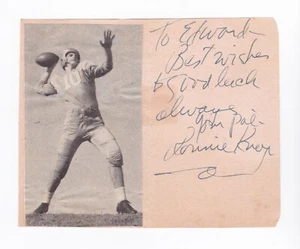 To Edward-
Best wishes
& Good luck
always
Your pal-
Ronnie Knox